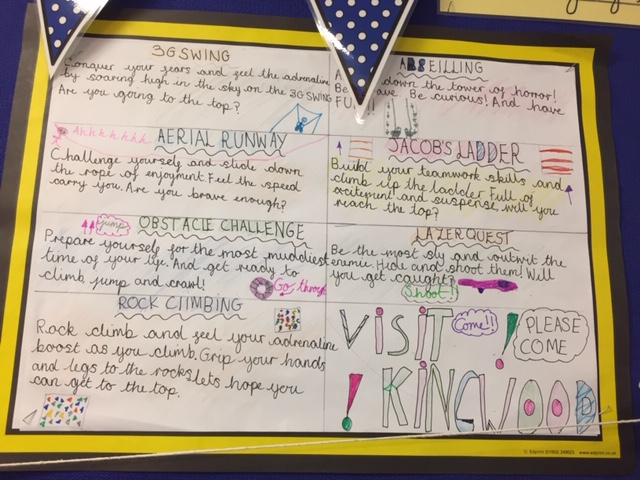 3G SWING
Conquer your fears and feel the adrenaline
by soaring high in the sky on the 3G SWING
Are you going to the top?
ABSEILLING
down the tower of horror!
Be Be curious! And have
FUN!!
Ahhhhhhh AERIAL RUNWAY
Challenge yourself and slide down
the rope of enjoyment. Feel the speed
carry you. Are you brave enough?
JACOB'S LADDER
Build your teamwork skills and
climb up the ladder. Full of
excitement and suspense, will you
reach the top?
jump OBSTACLE CHALLENGE
Prepare yourself for the most muddiest
time of your life. And get ready to
climb jump and crawl!
Go through
LAZERQUEST
Be the most sly and outwit the
enemie. Hide and shoot them! Will
you get caught?
Shoot!!
ROCK CLIMBING
Rock climb and feel your adrenaline
boost as you climb. Grip your hands
and legs to the rocks lets hope you
can get to the top.
VISIT
Come!!
PLEASE
COME
! KINGWOOD